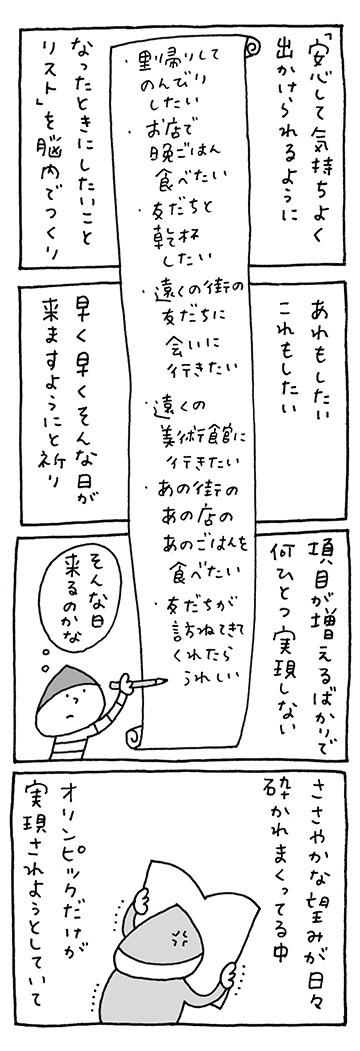 「安心して気持ちよく
出かけられるように
なったときにしたいこと
リスト」を脳内でつくり
・里帰りして
のんびり
したい
・お店で
晩ごはん
食べたい
・友だちと
乾杯
したい
・遠くの街の
友だちに
会いに
行きたい
・遠くの
美術館に
行きたい
・あの街の
あの店の
あのごはんを
食べたい
・友だちが
訪ねてきて
くれたら
うれしい
あれもしたい
これもしたい
早く早くそんな日が
来ますようにと祈り
項目が増えるばかりで
何ひとつ実現しない
そんな日
来るのかな
ささやかな望みが日々
砕かれまくってる中
オリンピックだけが
実現されようとしていて